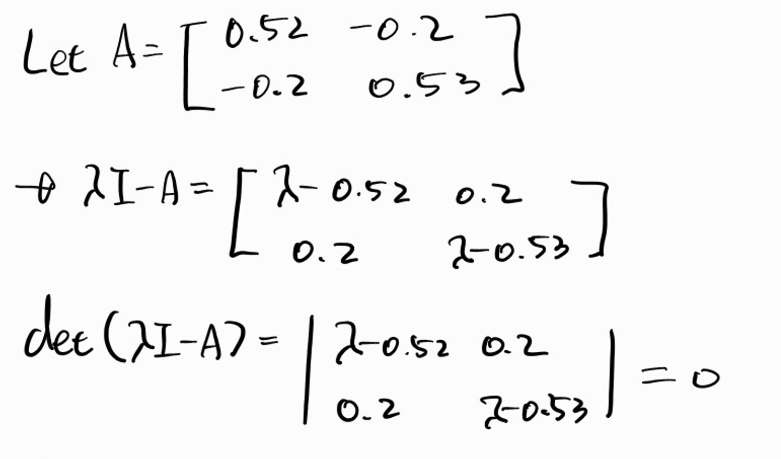 Let A = [ 0.52 -0.2
-0.2 0.53 ]
→ λI-A = [ λ-0.52 0.2
0.2 λ-0.53 ]
det(λI-A) = | λ-0.52 0.2
0.2 λ-0.53 | = 0